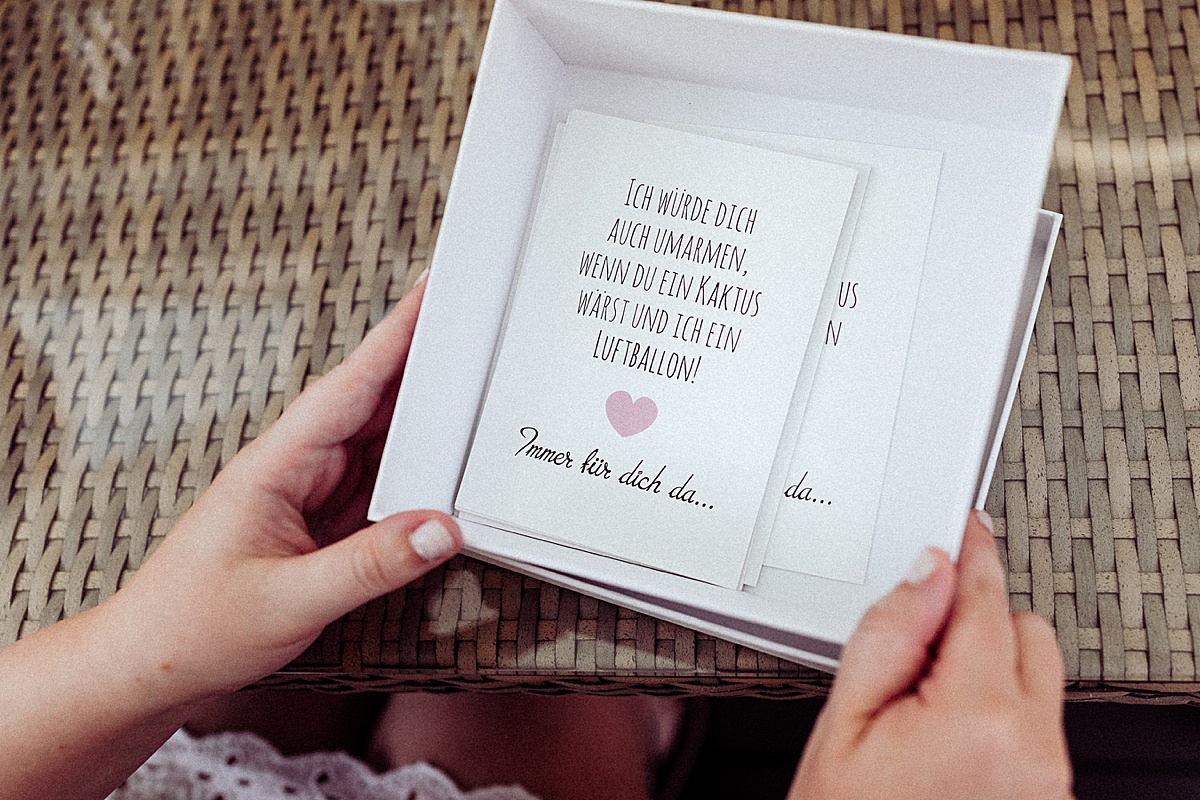 Ich würde dich
auch umarmen,
wenn du ein Kaktus
wärst und ich ein
Luftballon!
Immer für dich da...
US
N
da...